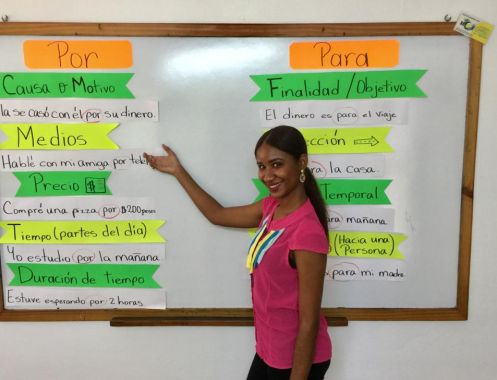 Por
Causa o Motivo
la se casó con él por su dinero.
Medios
Hablé con mi amiga por telé
Precio
Compré una pizza por $200 pesos
Tiempo (partes del día)
Yo estudio por la mañana
Duración de tiempo
Estuve esperando por 2 horas
Para
Finalidad / Objetivo
El dinero es para el viaje
cción
ra la casa.
Temporal
ara mañana
(Hacia una Persona)
para mi madre